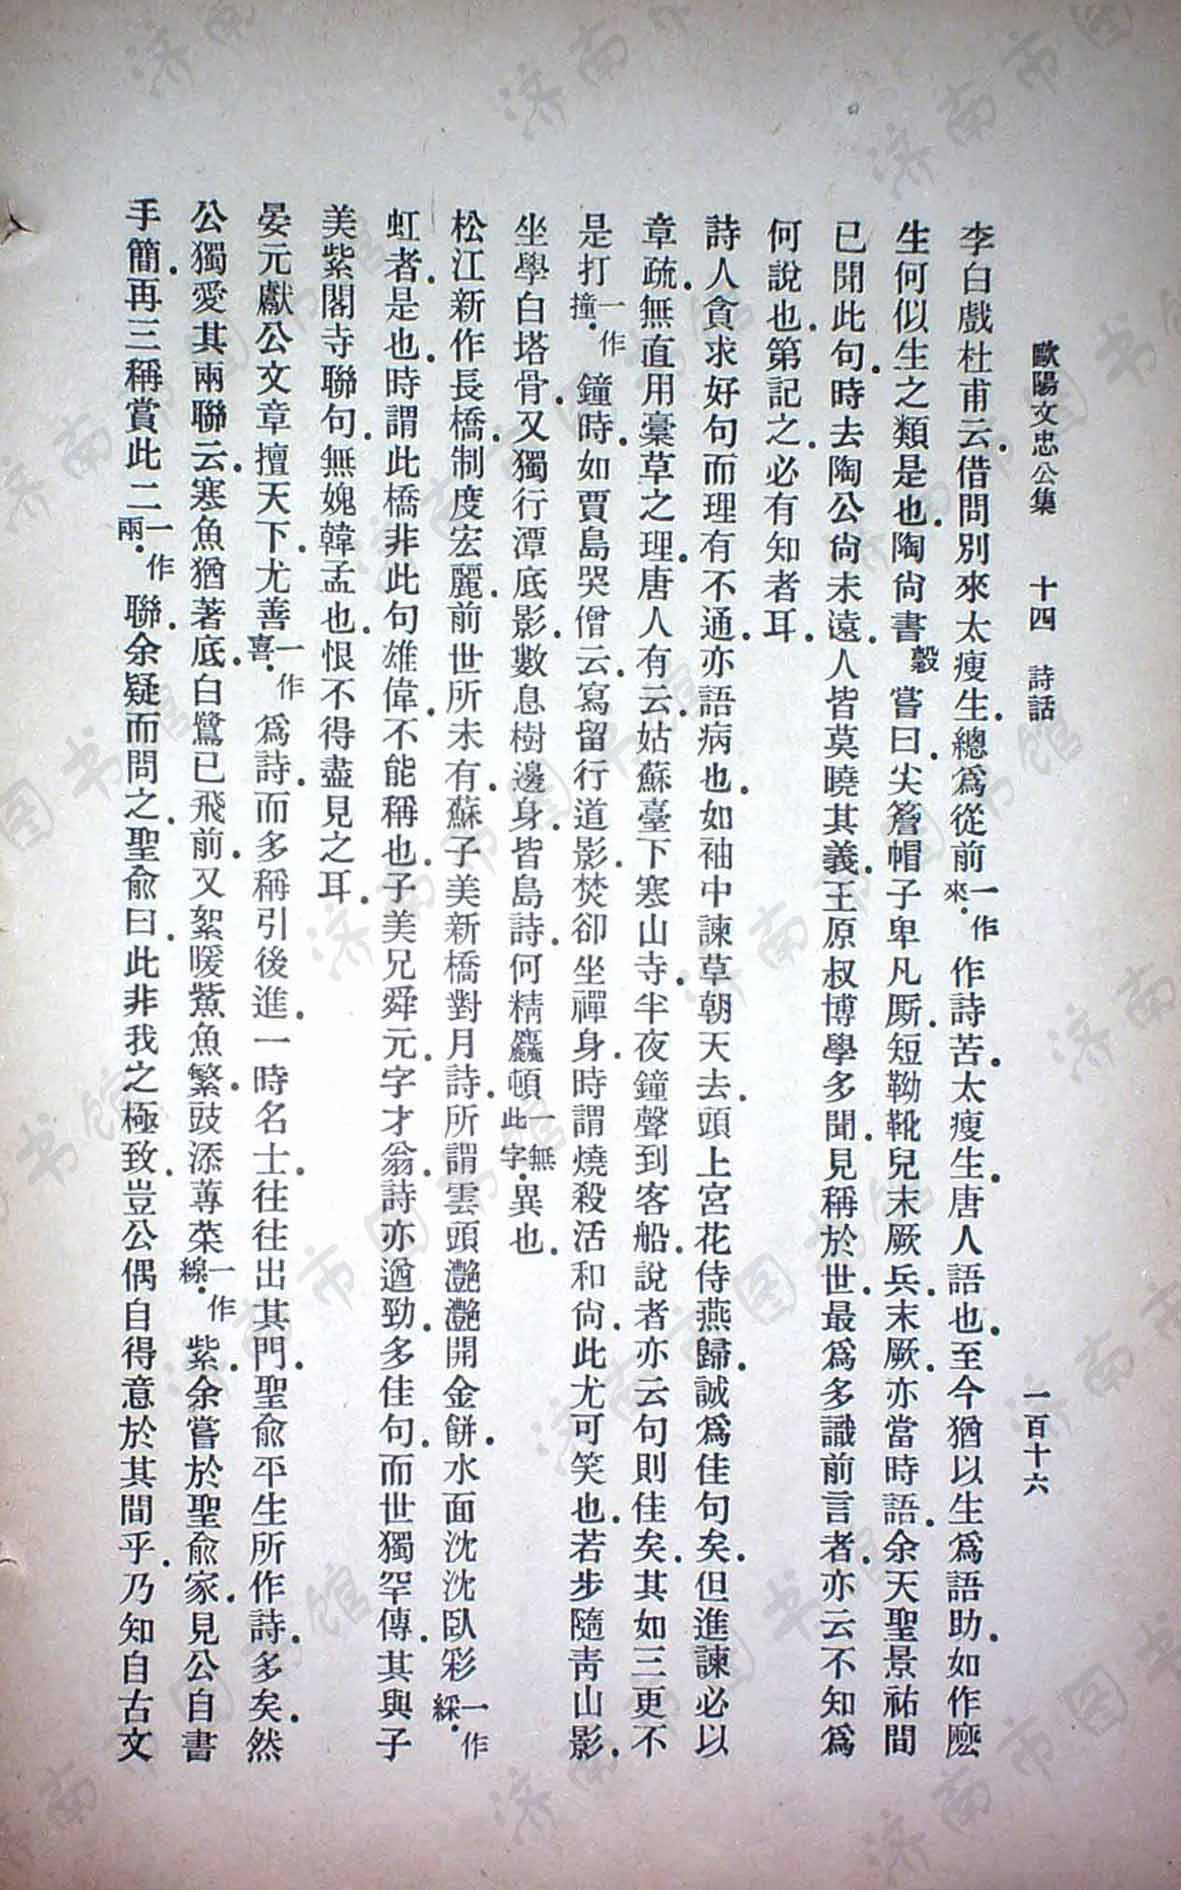 歐陽文忠公集 十四 詩話 一百十六
李白戲杜甫云.借問別來太瘦生.總爲從前一作來.作詩苦.太瘦生.唐人語也.至今猶以生爲語助.如作麽
生何似生之類是也.陶尙書穀嘗曰.尖簷帽子卑凡厮.短靿靴兒末厥兵.末厥.亦當時語.余天聖景祐間
已聞此句.時去陶公尙未遠.人皆莫曉其義.王原叔博學多聞.見稱於世.最爲多識前言者.亦云不知爲
何說也.第記之.必有知者耳.
詩人貪求好句而理有不通.亦語病也.如袖中諫草朝天去.頭上宮花侍燕歸.誠爲佳句矣.但進諫必以
章疏.無直用稾草之理.唐人有云.姑蘇臺下寒山寺.半夜鐘聲到客船.說者亦云句則佳矣.其如三更不
是打一作撞.鐘時.如賈島哭僧云.寫留行道影.焚卻坐禪身.時謂燒殺活和尙.此尤可笑也.若步隨靑山影.
坐學白塔骨.又獨行潭底影.數息樹邊身.皆島詩.何精麤頓一無此字.異也.
松江新作長橋.制度宏麗.前世所未有.蘇子美新橋對月詩.所謂雲頭灔灔開金餅.水面沈沈臥彩一作綵.
虹者.是也.時謂此橋非此句雄偉.不能稱也.子美兄舜元.字才翁.詩亦遒勁.多佳句.而世獨罕傳.其與子
美紫閣寺聯句.無媿韓孟也.恨不得盡見之耳.
晏元獻公文章擅天下.尤善一作喜.爲詩.而多稱引後進.一時名士.往往出其門.聖兪平生所作詩.多矣.然
公獨愛其兩聯云.寒魚猶著底.白鷺已飛前.又絮暖鮆魚繁.豉添蓴菜一作線.紫.余嘗於聖兪家.見公自書
手簡.再三稱賞此二一作兩.聯.余疑而問之.聖兪曰.此非我之極致.豈公偶自得意於其間乎.乃知自古文